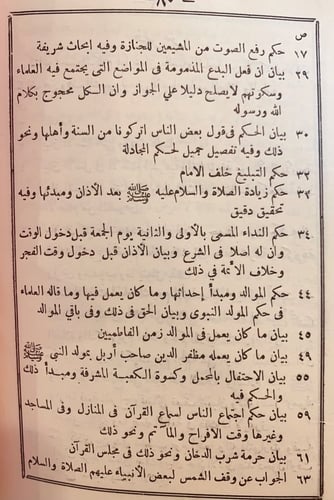 — ٨٠ —
ص
١٧ حكم رفع الصوت من المشيعين للجنازة وفيه ابحاث شريفة
٢٩ بيان ان فعل البدع المذمومة فى المواضع التى يجتمع فيه العلماء
وسكوتهم لايصلح دليلا على الجواز وان الكل محجوج بكلام
الله ورسوله
٣٠ بيان الحكم فى قول بعض الناس اتركونا من السنة وأهلها ونحو
ذلك وفيه تفصيل جميل لحكم المجادلة
٣٢ حكم التبليغ خلف الامام
٣٣ حكم زيادة الصلاة والسلام عليه ﷺ بعد الأذان ومبدئها وفيه
تحقيق دقيق
٣٤ حكم النداء المسمى بالأولى والثانية يوم الجمعة قبل دخول الوقت
وأن له اصلا فى الشرع وبيان الأذان قبل دخول وقت الفجر
وخلاف الأئمة فى ذلك
٤٤ حكم الموالد ومبدأ إحداثها وما كان يعمل فيها وما قاله العلماء
فى حكم المولد النبوى وبيان الحق فى ذلك وفى باقى الموالد
٤٥ بيان ما كان يعمل فى الموالد زمن الفاطميين
٤٩ بيان ما كان يعمله مظفر الدين صاحب أربل بمولد النبي ﷺ
٥٥ بيان الاحتفال بالمحمل وكسوة الكعبة المشرفة ومبدأ ذلك
والحكم فيه
٥٩ بيان حكم اجتماع الناس لسماع القرآن فى المنازل وفى المساجد
وغيرها وقت الافراح والمآتم ونحو ذلك
٦١ بيان حرمة شرب الدخان ونحو ذلك فى مجلس القرآن
٦٣ الجواب عن وقف الشمس لبعض الأنبياء عليهم الصلاة والسلام